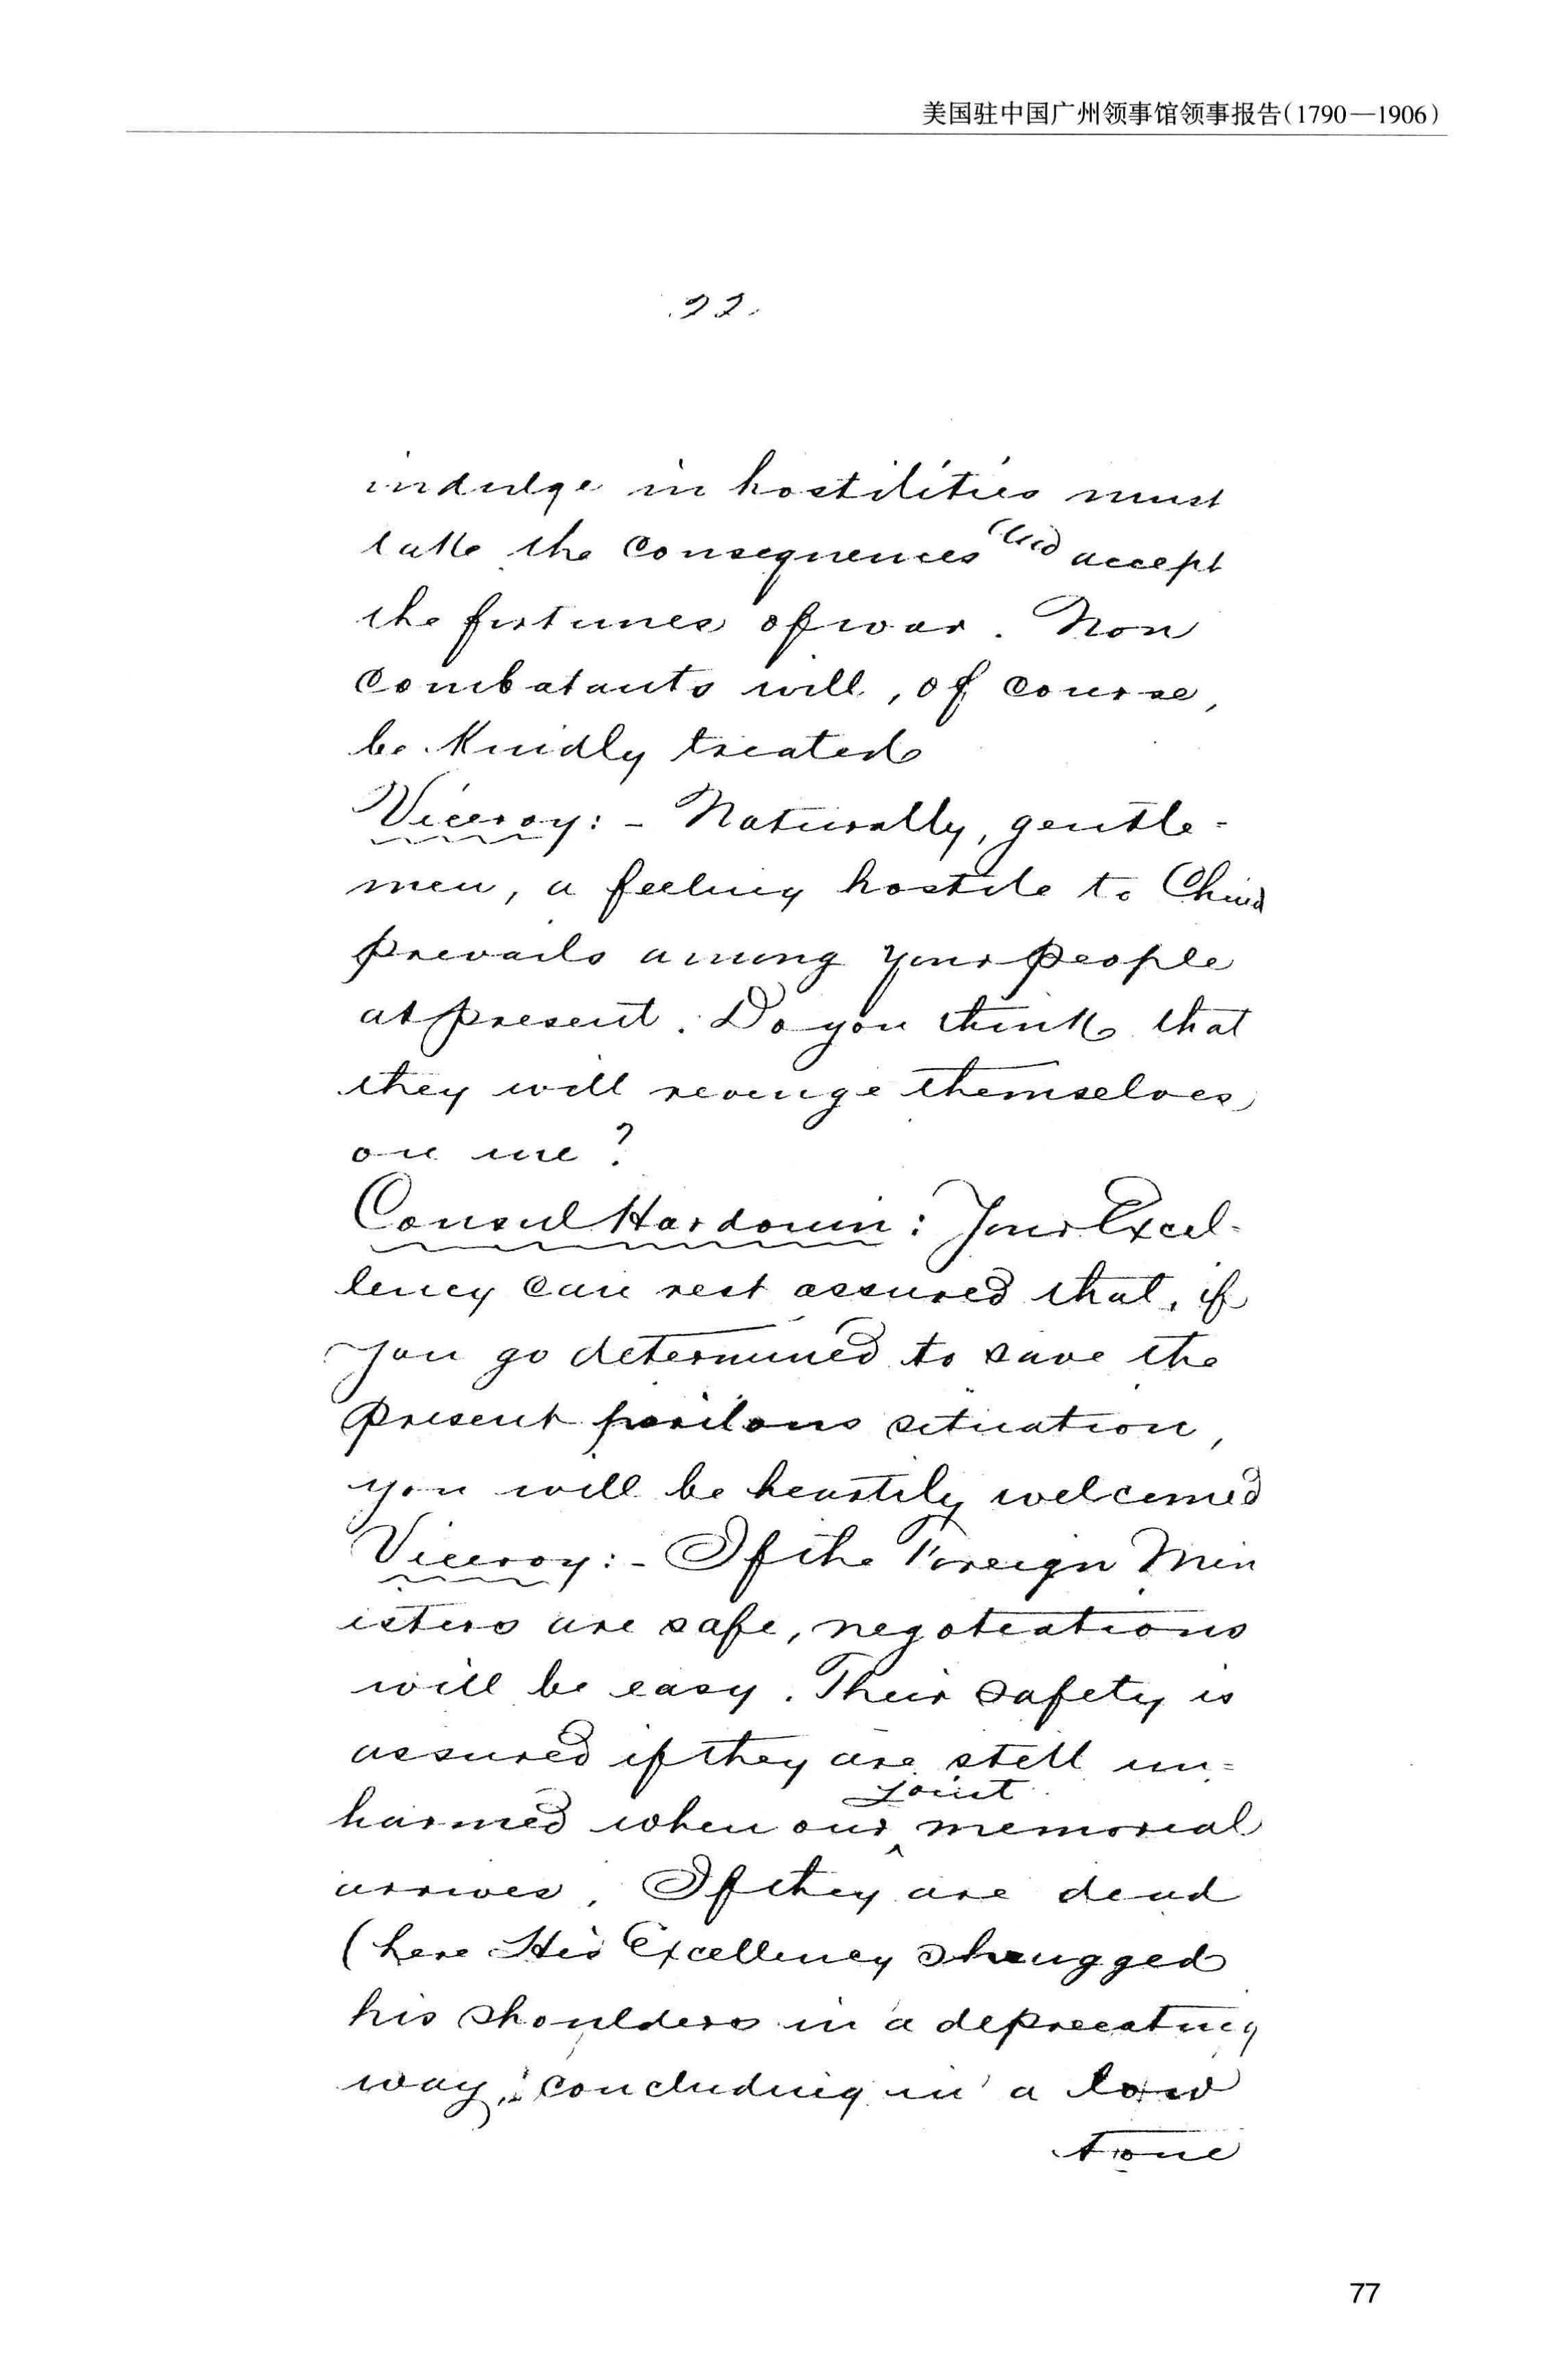 美国驻中国广州领事馆领事报告(1790—1906)
22.
indulge in hostilities must
take the consequences and accept
the fortunes of war. Non
combatants will, of course,
be kindly treated
Viceroy:- Naturally, gentle-
men, a feeling hostile to China
prevails among your people
at present. Do you think that
they will revenge themselves
on me?
Consul Hardouin: Your Excel-
lency can rest assured that, if
you go determined to save the
present perilous situation,
you will be heartily welcomed
Viceroy:- If the Foreign Min
isters are safe, negotiations
will be easy. Their safety is
assured if they are still un-
joint
harmed when our memorial
arrives. If they are dead
(here His Excellency shrugged
his shoulders in a deprecating
way, concluding in a low
tone
77